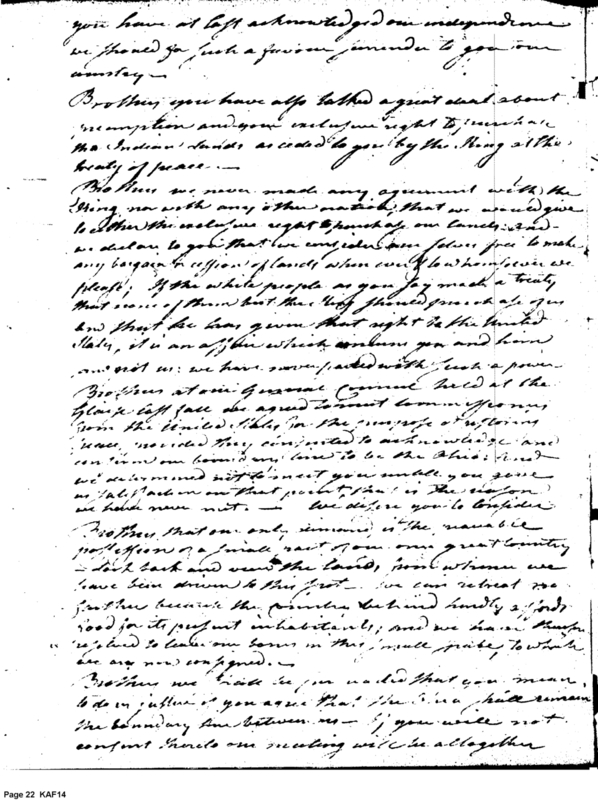 you have at last acknowledged our independence
we should for such a favour surrender to you our
country—
Brothers you have also talked a great deal about
preemption and your exclusive right to purchase
the Indian Lands as ceded to you by the King at the
treaty of peace.—
Brothers we never made any agreement with the
King nor with any other nation, that we would give
to either the exclusive right to purchase our lands. and
we declare to you that we consider our selves free to make
any bargain or cession of lands when ever & to whomsoever we
please; If the white people as you say made a treaty
that none of them but the King should purchase of us
and that he has given that right to the United
States, it is an affair which concerns you and him
and not us: we have never parted with such a power
Brothers at our General Council held at the
Glaize last fall we agreed to meet Commissioners
from the United States for the purpose of restoring
peace, provided they consented to acknowledge and
confirm our boundary line to be the Ohio; and
we determined not to meet you untill you gave
us satisfaction on that point, that is the reason
we have never met.— We desire you to consider
Brothers, that our only demand is the peaceable
possession of a small part of our once great Country
look back and view the lands from whence we
have been driven to this spot we can retreat no
further because the country behind hardly affords
food for its present inhabitants; and we have therefore
resolved to leave our bones in this small space, to which
we are now consigned.—
Brothers we shall be persuaded that you mean
to do us justice if you agree that the Ohio shall remain
the boundary line between us— If you will not
consent thereto our meeting will be altogether
Page 22 KAF14